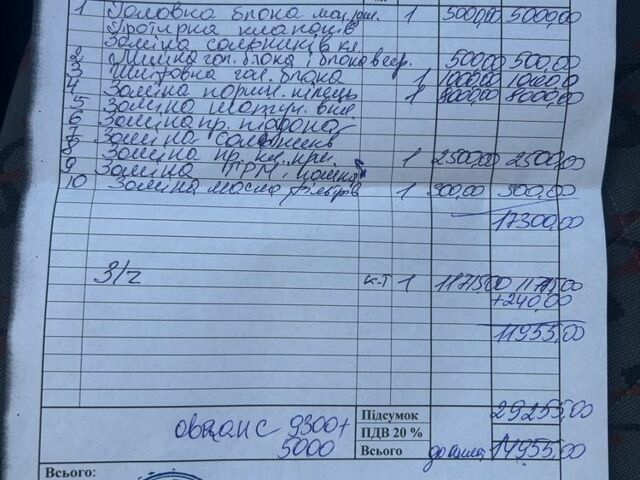 1 Головка блока 1 5000,00 5000,00
Протирка клапанів
Заміна сальників кл.
2 Мийка гол. блока і блока в сер. 500,00 500,00
3 Шліфовка гол. блока 1 1000,00 1000,00
4 Заміна порш. кілець 1 8000,00 8000,00
5 Заміна шатун. вкл.
6 Заміна пр. піддона
7 Заміна сальників
8 Заміна пр. кл. кри. 1 2500,00 2500,00
9 Заміна ГРМ,
10 Заміна масла фільтрів 1 300,00 300,00
17300,00
З/ч к-т 1 11715,00 11715,00
+240,00
11955,00
29255,00
аванс 9300+
5000
Підсумок
ПДВ 20 %
Всього 14955,00
Всього: